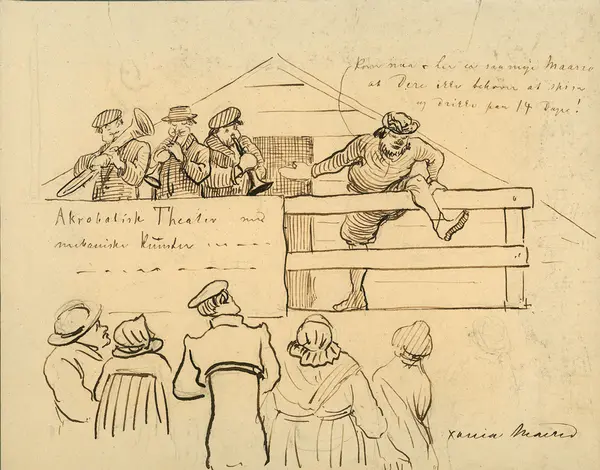 Kom nua & her er saamyje Maarro
at Dere ikke behøver at spise
og drikke paa 14 Dage!
Akrobatisk Theater med
mekaniske Künster
Maerid